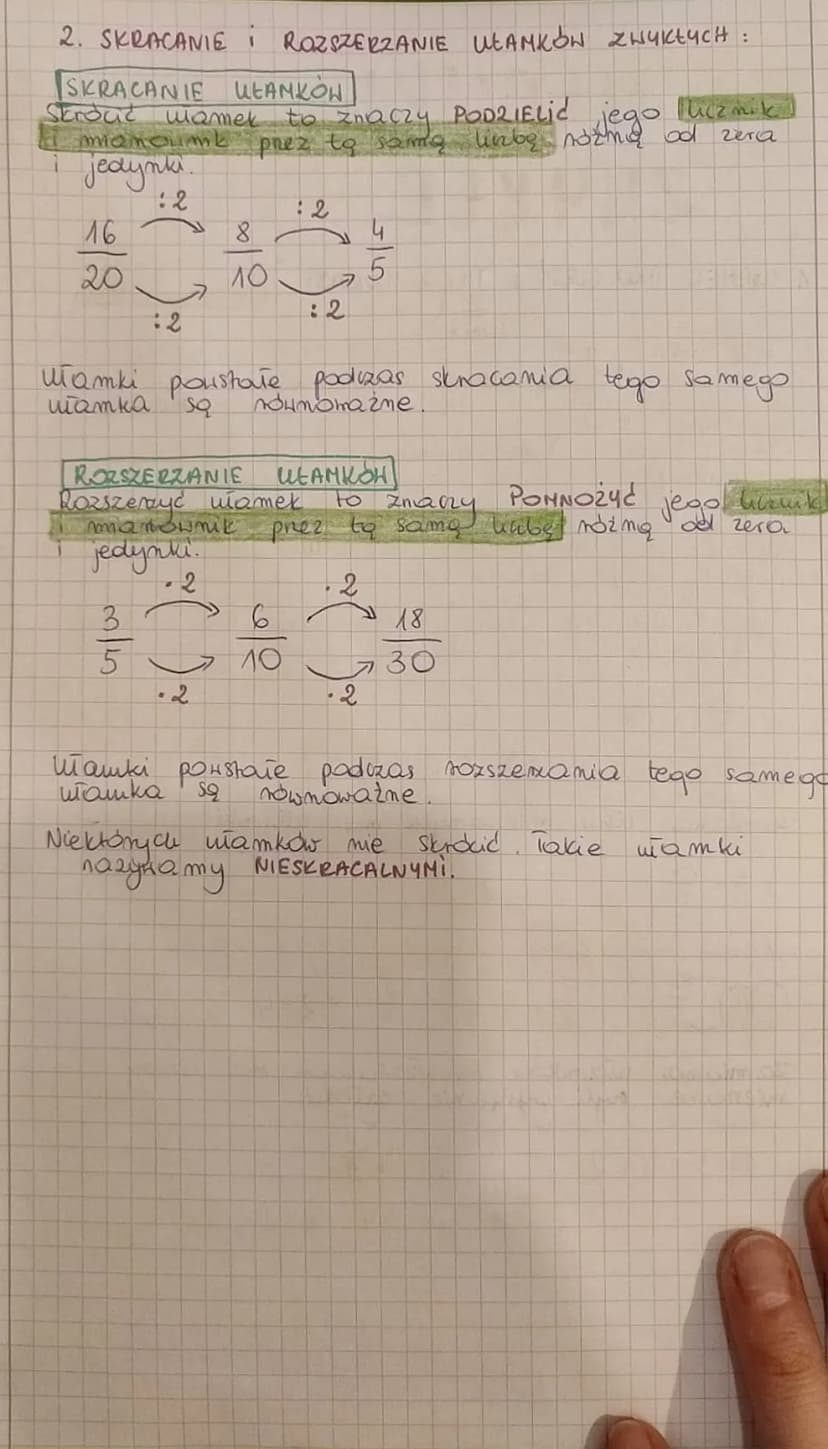 2. SKRACANIE i ROZSZERZANIE UŁAMKÓW ZWYKŁYCH:
SKRACANIE UŁAMKÓW
Skrócić ułamek to znaczy PODZIELIĆ jego licznik
i mianownik przez tę samą liczbę różną od zera
i jedynki.
:2 :2
16/20 8/10 4/5
:2 :2
Ułamki powstałe podczas skracania tego samego
ułamka są równoważne.
ROZSZERZANIE UŁAMKÓW
Rozszerzyć ułamek to znaczy POMNOŻYĆ jego licznik
i mianownik przez tę samą liczbę różną od zera
i jedynki.
·2 ·2
3/5 6/10 18/30
·2 ·2
Ułamki powstałe podczas rozszerzania tego samego
ułamka są równoważne.
Niektórych ułamków nie skrócić. Takie ułamki
nazywamy NIESKRACALNYMI.